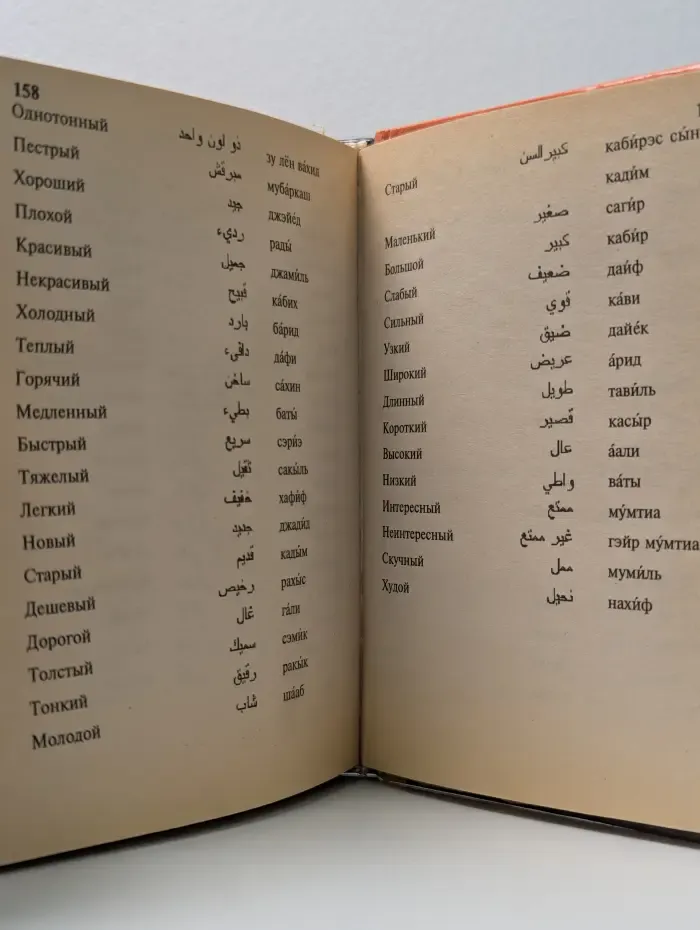 158
Однотонный ذو لون واحد зу лён ва́хид
Пестрый مبرقش муба́ркаш
Хороший جيد джэйе́д
Плохой رديء рады́
Красивый جميل джами́ль
Некрасивый قبيح ка́бих
Холодный بارد ба́рид
Теплый دافىء да́фи
Горячий ساخن са́хин
Медленный بطيء баты́
Быстрый سريع сэри́э
Тяжелый ثقيل сакы́ль
Легкий خفيف хафи́ф
Новый جديد джади́д
Старый قديم кады́м
Дешевый رخيص рахы́с
Дорогой غال га́ли
Толстый سميك сэми́к
Тонкий رقيق ракы́к
Молодой شاب ша́аб
Старый كبير السن каби́рэс сы́н
кади́м
Маленький صغير саги́р
Большой كبير каби́р
Слабый ضعيف даи́ф
Сильный قوي ка́ви
Узкий ضيق дайе́к
Широкий عريض а́рид
Длинный طويل тави́ль
Короткий قصير касы́р
Высокий عال а́али
Низкий واطي ва́ты
Интересный ممتع му́мтиа
Неинтересный غير ممتع гэйр му́мтиа
Скучный ممل муми́ль
Худой نحيل нахи́ф